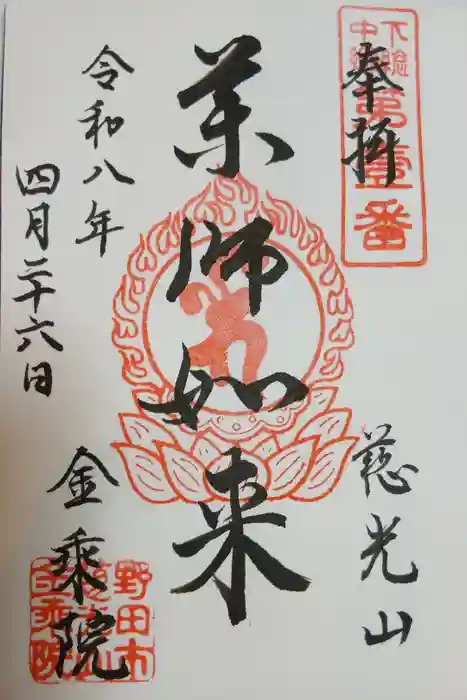 奉拝
下総
中総
第壹番
慈光山
薬師如来
令和八年
四月二十六日
金乗院
野田市
慈光山
金乗院